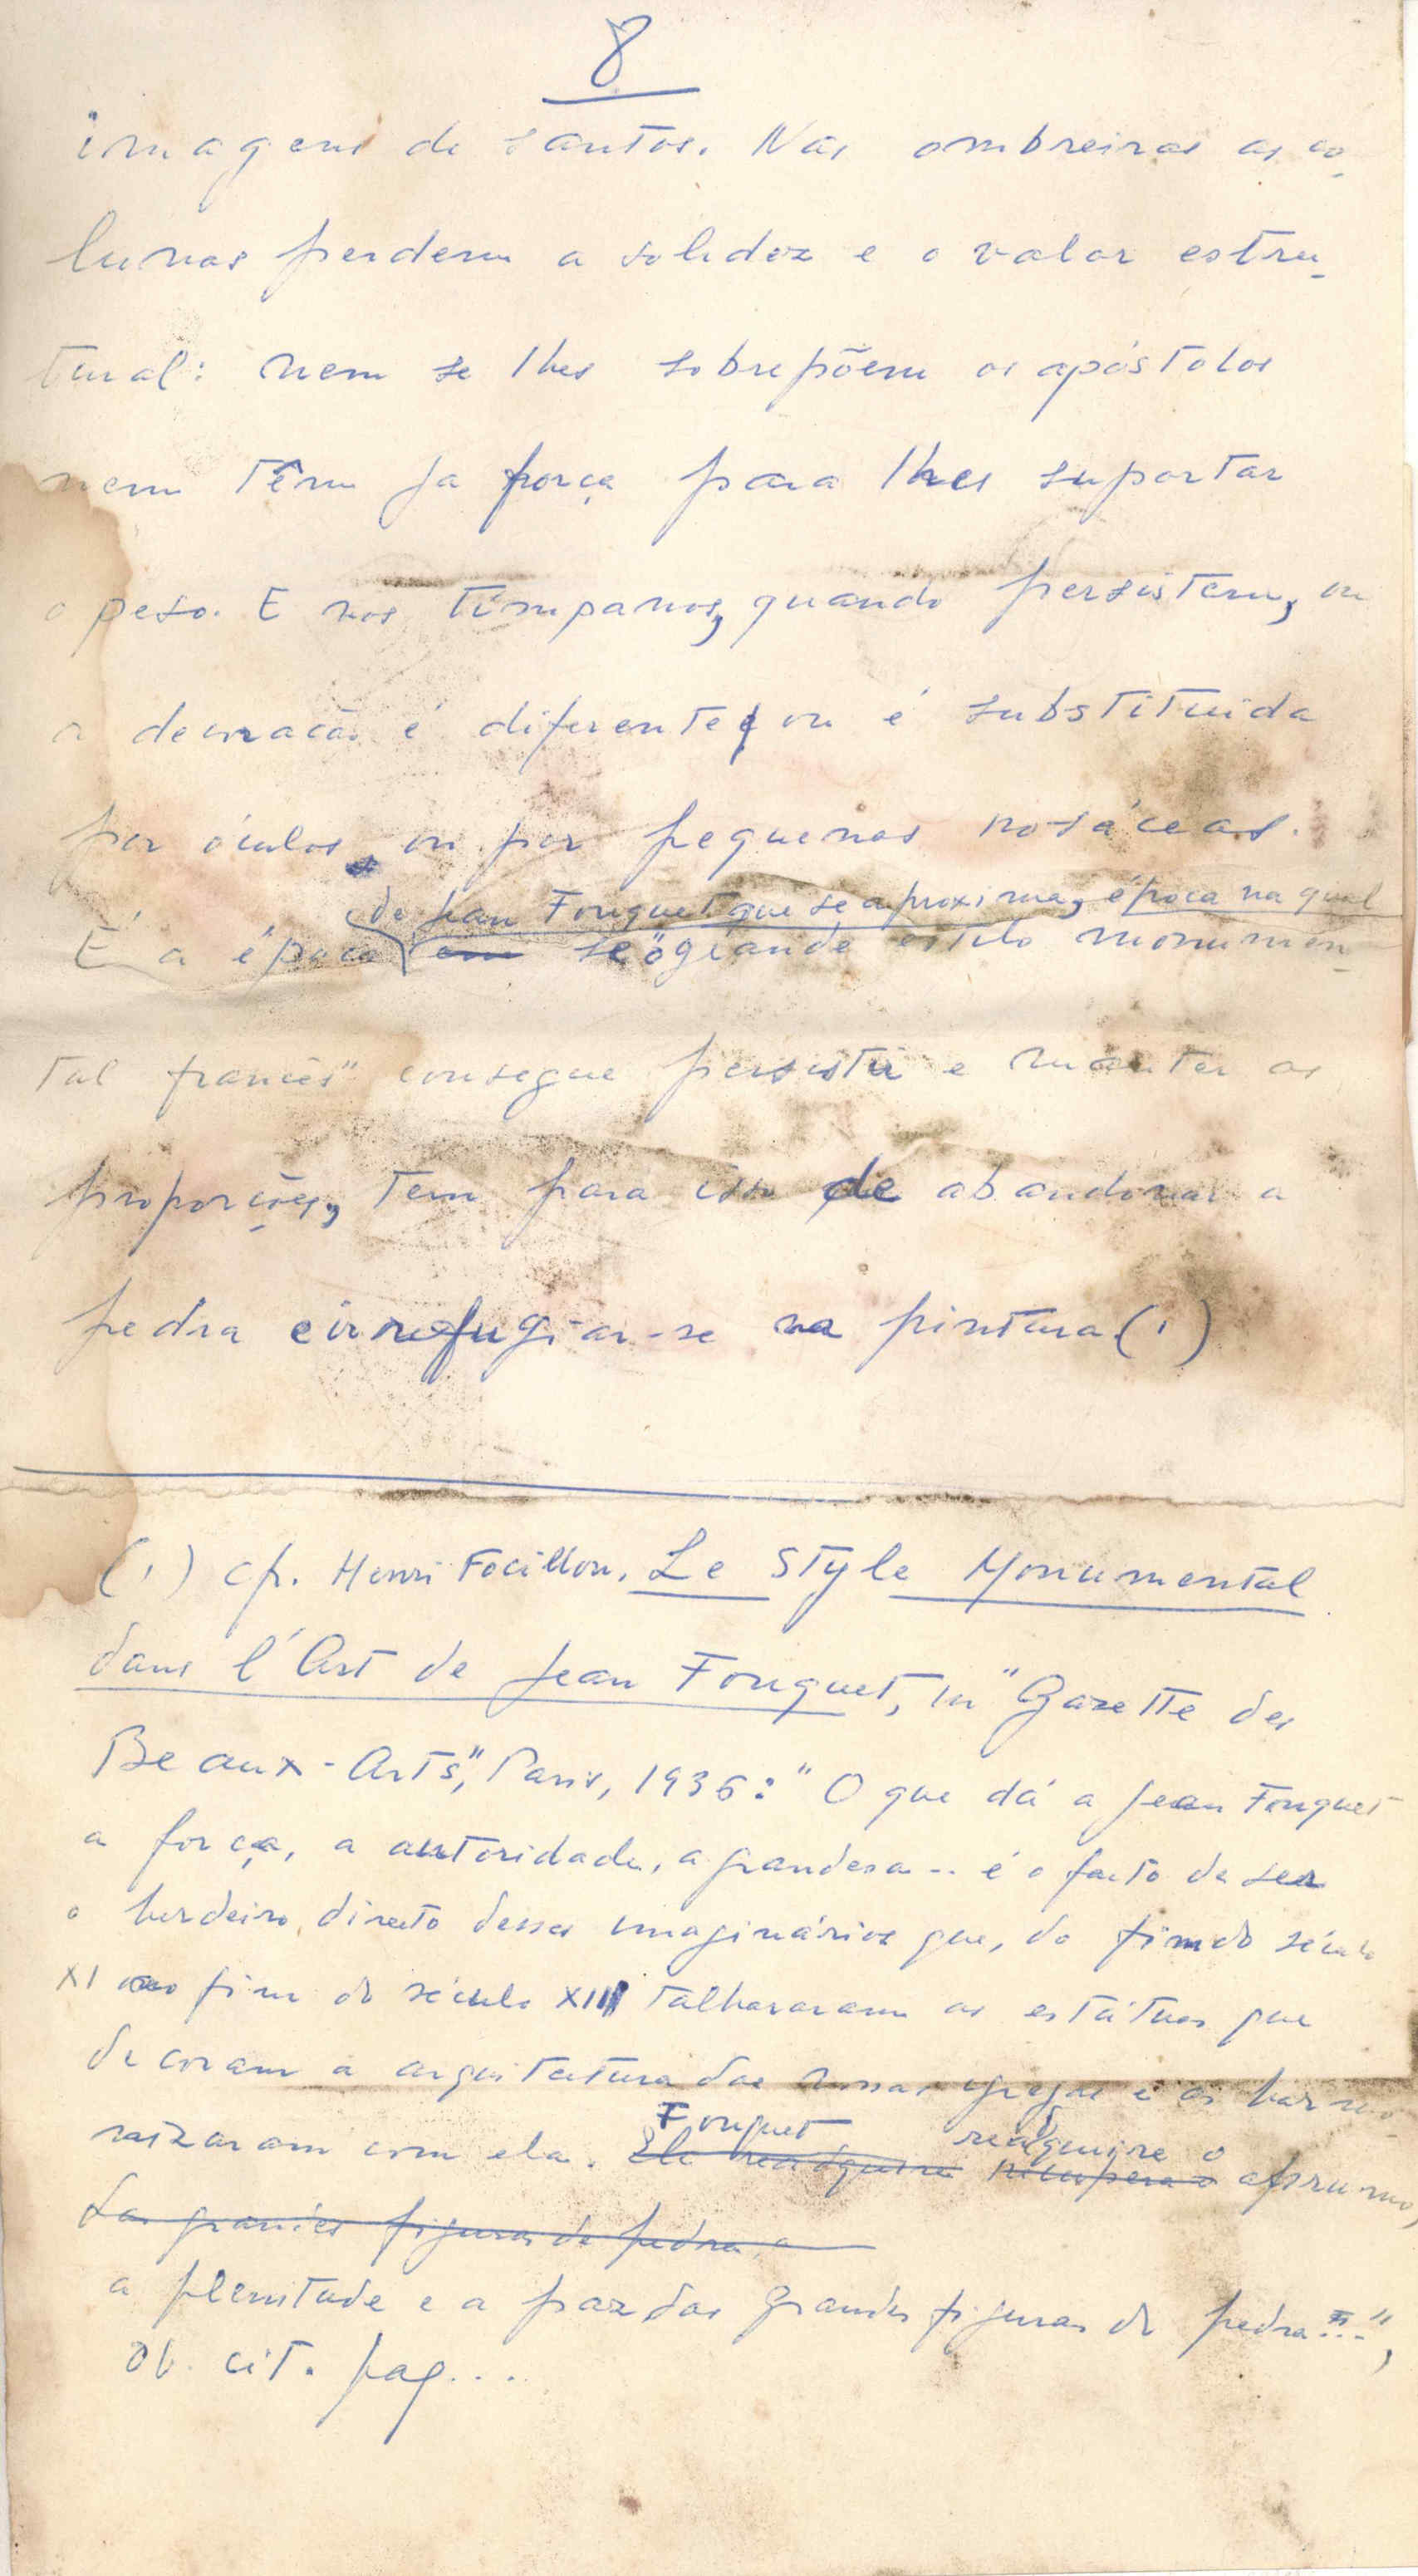 8
imagens de santos. Nas ombreiras as co-
lunas perdem a solidez e o valor estru-
tural: nem se lhes sobrepõem os apóstolos
nem têm ja força para lhes suportar
o peso. E nos tímpanos, quando persistem, ou
a decoração é diferente, ou é substituida
por óculos, ou por pequenas rosáceas.
de Jean Fouquet que se aproxima, época na qual
É a época em se "o grande estilo monumen-
tal francês" consegue persistir e manter as
proporções, tem para isso de abandonar a
pedra e ir refugiar-se na pintura (1)
(1) cf. Henri Focillon. Le Style Monumental
dans l'Art de Jean Fouquet, in "Gazette des
Beaux-Arts", Paris, 1936: "O que dá a Jean Fouquet
a força, a autoridade, a grandesa... é o facto de ser
o herdeiro directo desses imaginários que, do fim do século
XI ao fim do século XIII talhararam as estátuas que
decoram a arquitectura das nossas igrejas e as harmo-
nizaram com ela. Ele readquire recupera o aprumo,
Fouquet readquire o
das grandes figuras de pedra, a
a plenitude e a paz das grandes figuras de pedra...",
Ob. cit. pag...